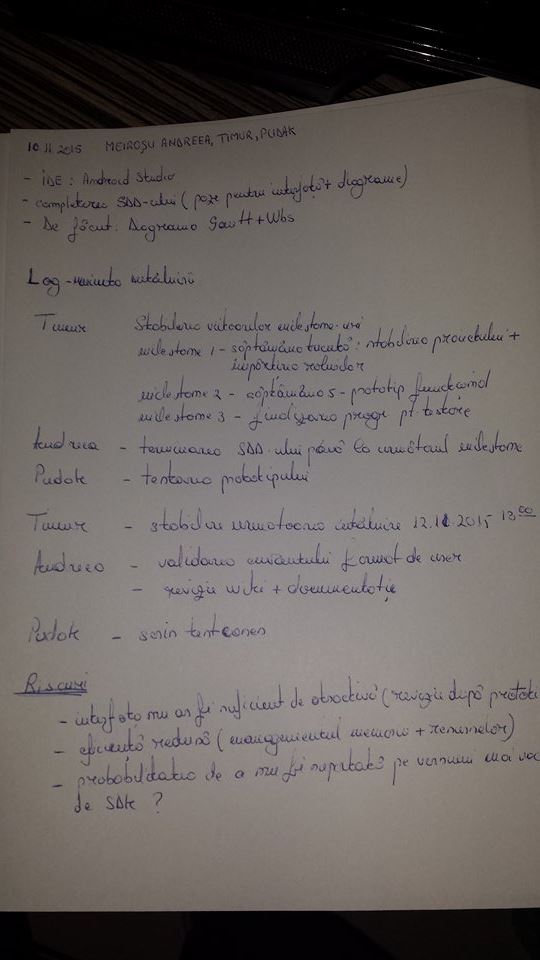 10.11.2015 MEIROȘU ANDREEA, TIMUR, PUDAK
- IDE: Android Studio
- completarea SDD-ului (poze pentru interfață + diagrame)
- De făcut: Diagrama Gantt + Wbs
Log - minuta întâlnirii
Timur Stabilirea viitoarelor milestone-uri
milestone 1 - săptămâna trecută: stabilirea proiectului +
împărțirea rolurilor
milestone 2 - săptămâna 5 - prototip funcțional
milestone 3 - finalizarea progr pt. testare
Andreea - terminarea SDD-ului până la următorul milestone
Pudak - testarea prototipului
Timur - stabilire următoarea întâlnire 12.11.2015 18:00
Andreea - validarea cuvântului format de user
- revizie wiki + documentație
Pudak - scrin
Riscuri
- interfața nu ar fi suficient de atractivă (revizii după
- eficiență redusă (managementul memoriei + resurselor)
- probabilitatea de a nu fi suportată pe versiuni mai
de SDK ?